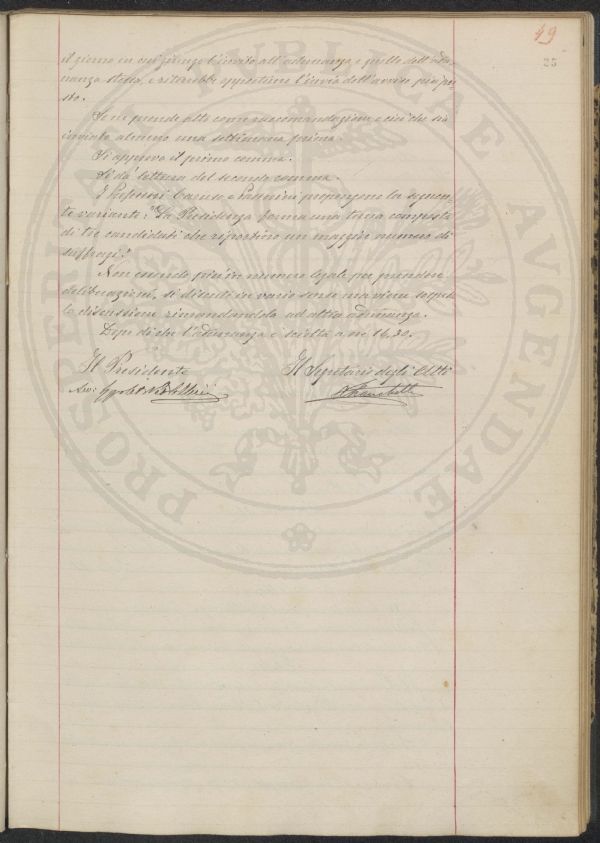 49
25
il giorno in cui giunge l'invito all'adunanza e quello dell'adu-
nanza stessa, e sarebbe opportuno l'invio dell'avviso più pre-
sto.
Se ne prende atto come raccomandazione e così che sia
inviato almeno una settimana prima.
Si approva il primo comma.
Si dà lettura del secondo comma.
I Professori Caruso e Passerini propongono la seguen-
te variante: "La Presidenza forma una terna composta
di tre candidati che riportino un maggior numero di
suffragi".
Non essendo più in numero legale per prendere
deliberazioni, si discute in vario senso ma viene sospesa
la discussione rimandandola ad altra adunanza.
Dopo di che l'adunanza è sciolta a ore 16,30.
Il Presidente
Il Segretario degli Atti
PROSPERITATI PUBLICAE AVGENDAE